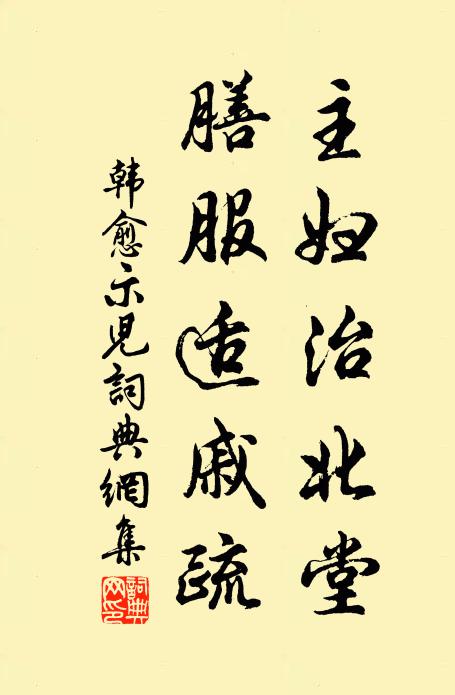 主妇治北堂
膳服适戚疏
韩愈示児詞典網集
詞典网印